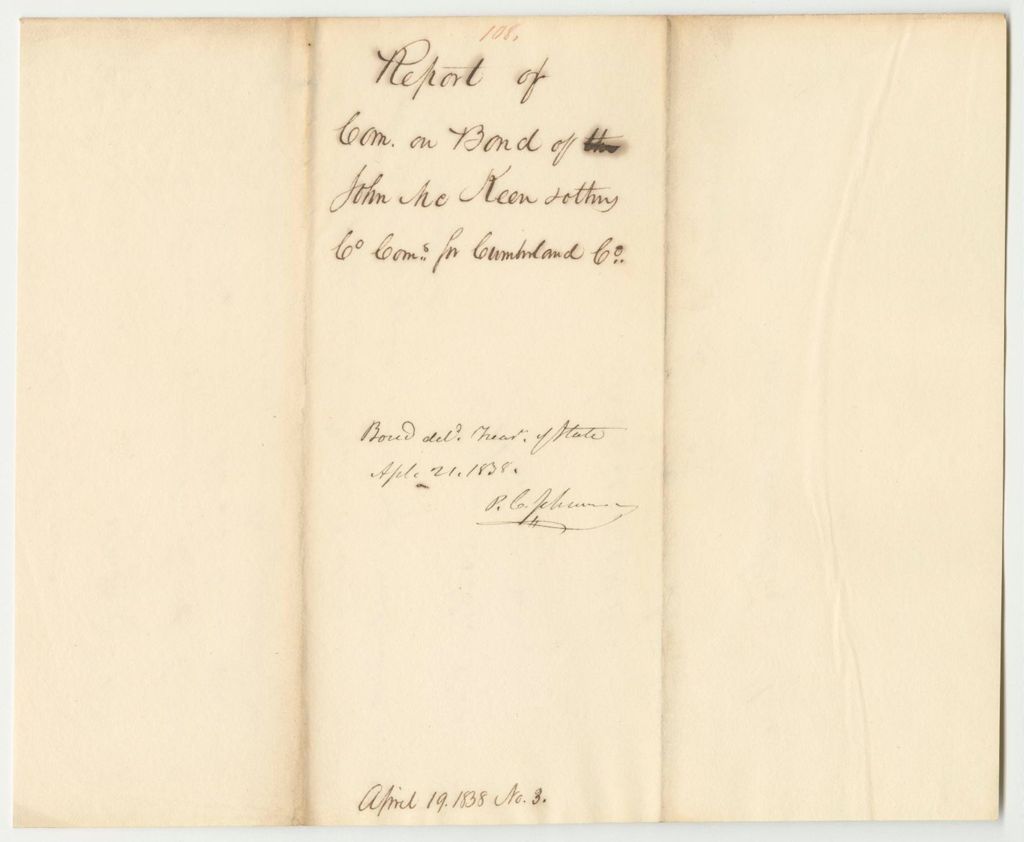 108.
Report of
Com. on Bond of the
John Mc Keen & others
Co Coms. for Cumberland Co.
Bond deld. Treasr. of State
Apl. 21. 1838.
P. C. Johnson
April 19. 1838 No. 3.